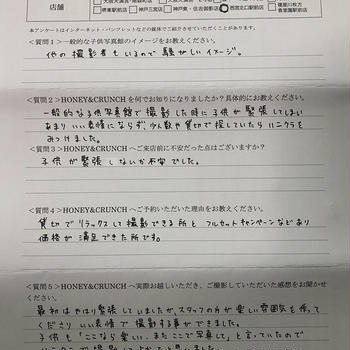 店舗
堺東駅前店
神戸三宮店
神戸東・住吉御影店
西宮北口駅前店
寝屋川枚方
香里園駅前店
本アンケートはインターネット・パンフレットなどの媒体でご紹介させていただくことがあります。
＜質問１＞一般的な子供写真館のイメージをお教えください。
他の撮影者もいるので騒がしいイメージ。
＜質問２＞HONEY&CRUNCHを何でお知りになりましたか？具体的にお教えください。
一般的な子供写真館で撮影した時に子供が緊張してしまい
あまりいい表情にならず、少人数や貸切で探していたらハニクラを
みつけました。
＜質問３＞HONEY&CRUNCHへご来店前に不安だった点はございますか？
子供が緊張しないか不安でした。
＜質問４＞HONEY&CRUNCHへご予約いただいた理由をお教えください。
貸切でリラックスして撮影できる所とフルセットキャンペーンなどあり
価格が満足できた所です。
＜質問５＞HONEY&CRUNCHへ実際お越しいただき、ご撮影していただいた感想をお聞かせ
ください。
最初はやはり緊張していましたが、スタッフの方が楽しい雰囲気を作って
くださりいい表情で撮影する事ができました。
子供も「ここなら楽しい、またここで写真して」と言っていたので